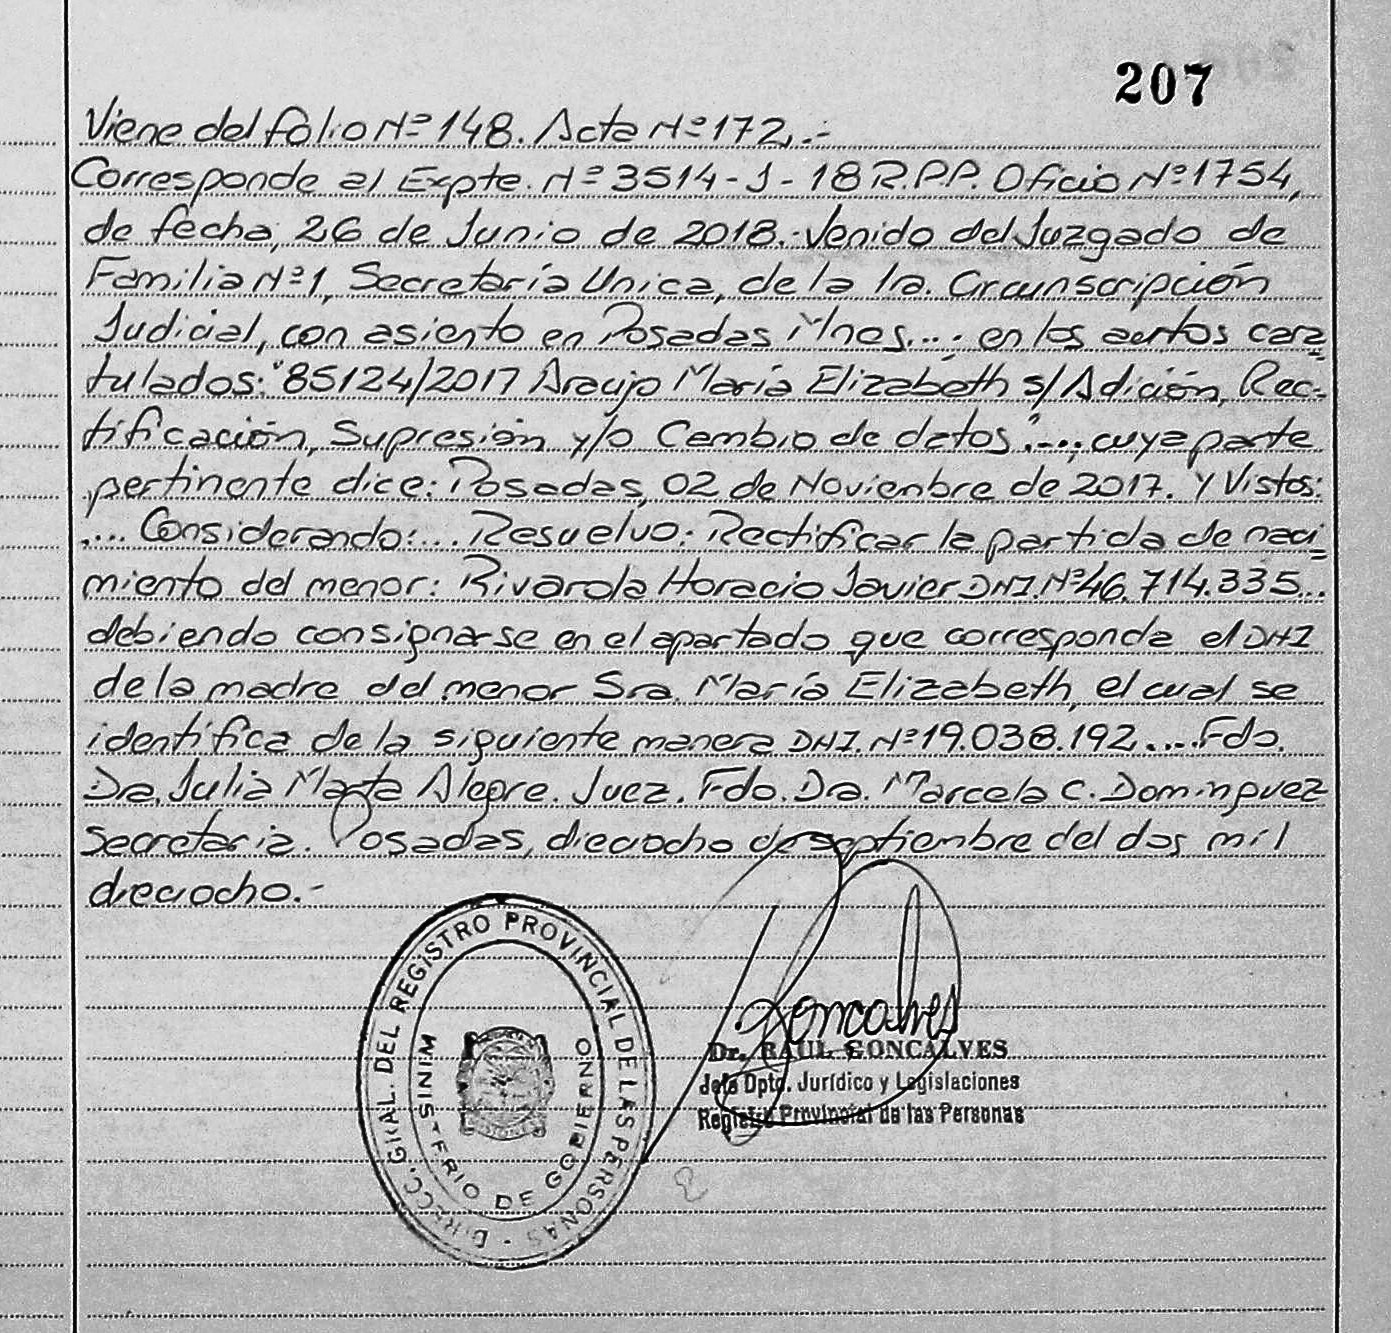 207
Viene del folio Nº 148. Acta Nº 172.-
Corresponde al Expte. Nº 3514-J-18 R.P.P. Oficio Nº 1754,
de fecha, 26 de Junio de 2018.- Venido del Juzgado de
Familia Nº 1, Secretaría Unica, de la 1ra. Circunscripción
Judicial, con asiento en Posadas Mnes...; en los autos cara=
tulados: "85124/2017 Araujo María Elizabeth s/Adición, Rec=
tificación, Supresión y/o Cambio de datos"...; cuya parte
pertinente dice: Posadas, 02 de Noviembre de 2017. Y Vistos:
.... Considerando:... Resuelvo: Rectificar la partida de naci=
miento del menor: Rivarola Horacio Javier DNI. Nº 46.714.335...
debiendo consignarse en el apartado que corresponda el DNI
de la madre del menor Sra. María Elizabeth, el cual se
identifica de la siguiente manera DNI. Nº 19.038.192.... Fdo.
Dra. Julia Marta Alegre. Juez. Fdo. Dra. Marcela C. Dominguez
Secretaria. Posadas, dieciocho de septiembre del dos mil
dieciocho.-
DIRECC. GRAL. DEL REGISTRO PROVINCIAL DE LAS PERSONAS -
MINISTERIO DE GOBIERNO
Goncalves
Dr. RAUL GONCALVES
Jefe Dpto. Jurídico y Legislaciones
Registro Provincial de las Personas